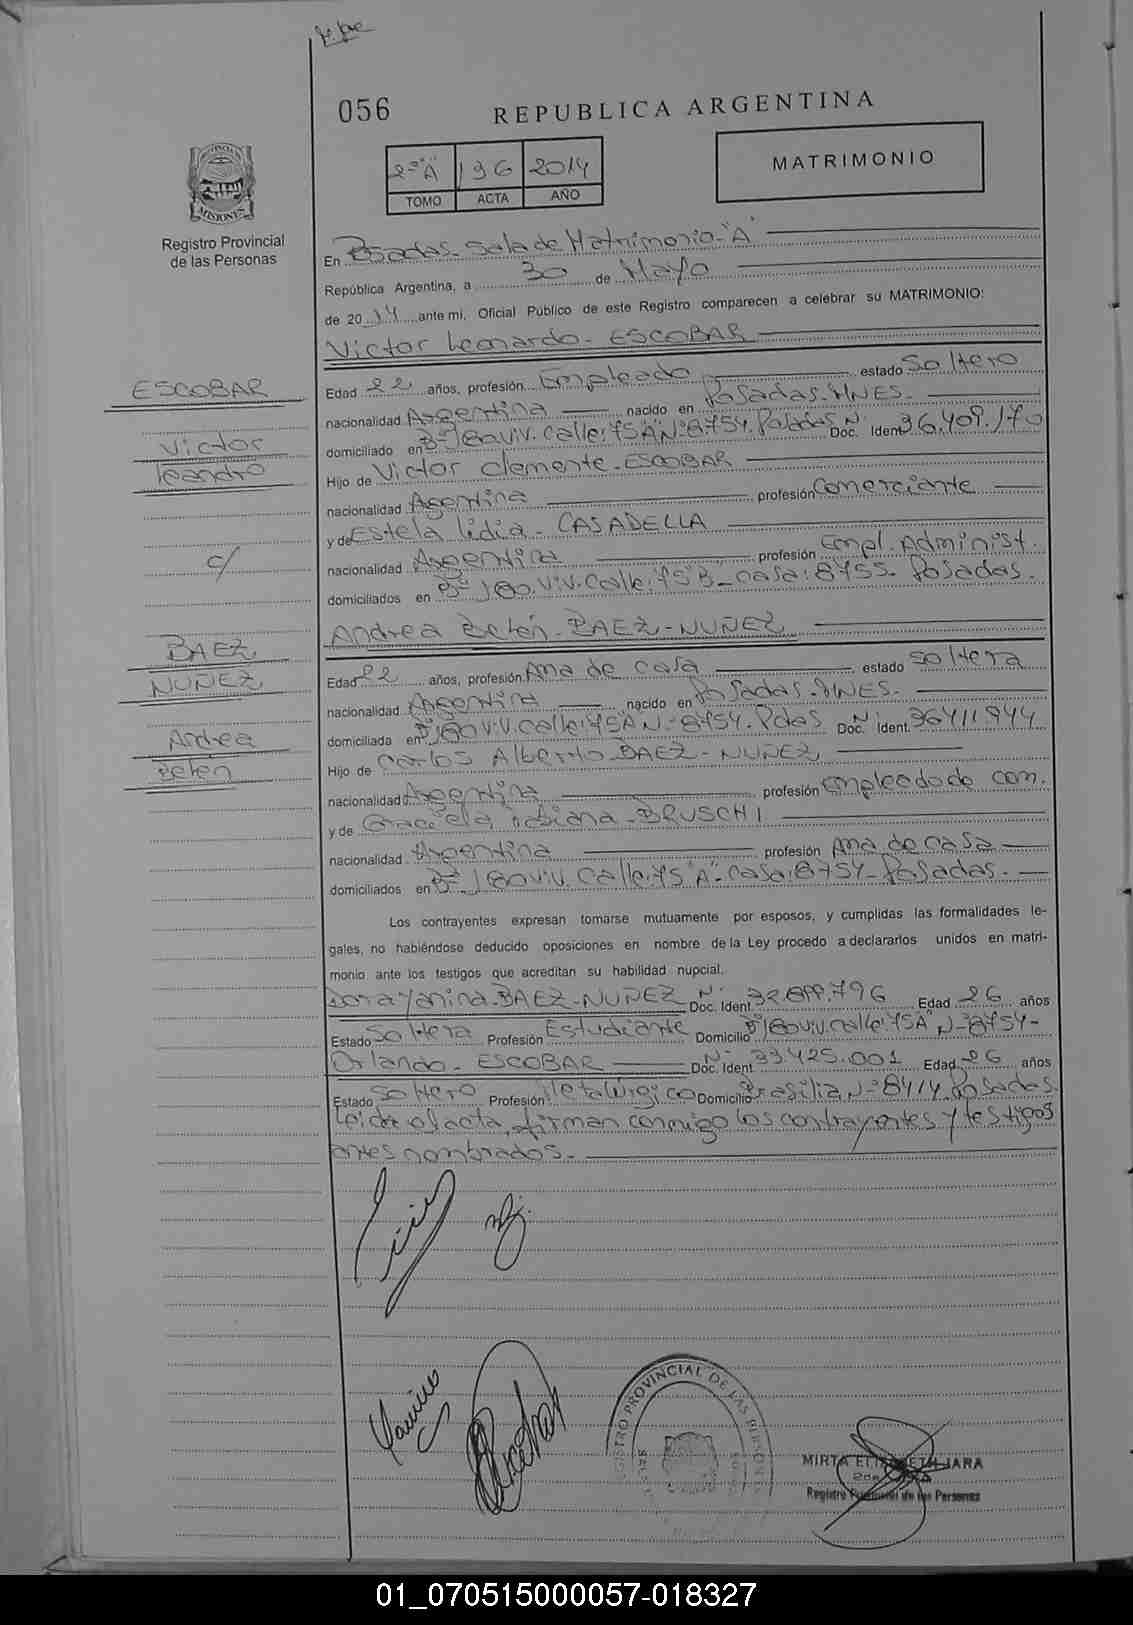 056
REPUBLICA ARGENTINA
2º"A" 196 2014
TOMO ACTA AÑO
MATRIMONIO
PROVINCIA DE MISIONES
Registro Provincial
de las Personas
En Posadas - Sala de Matrimonio - "A"
República Argentina, a 30 de Mayo
de 2014 ante mi, Oficial Público de este Registro comparecen a celebrar su MATRIMONIO:
Victor Leonardo - ESCOBAR
ESCOBAR
Victor
Leandro
c/
BAEZ
NUÑEZ
Andrea
Belén
Edad 22 años, profesión Empleado estado Soltero
nacionalidad Argentina nacido en Posadas - MNES.
domiciliado en Bº 180 viv. calle: 75 A Nº 8754. Posadas Doc. Ident Nº 36.409.170
Hijo de Victor Clemente - ESCOBAR
nacionalidad Argentina profesión Comerciante
y de Estela Lidia - CASADELLA
nacionalidad Argentina profesión Empl. Administ.
domiciliados en Bº 180. viv. Calle: 75 B - casa: 8755 - Posadas.
Andrea Belén - BAEZ - NUÑEZ
Edad 22 años, profesión Ama de casa estado soltera
nacionalidad Argentina nacido en Posadas. MNES.
domiciliada en Bº 180 viv. calle: 75 A Nº 8754. Pdas Doc. Ident. Nº 36411944
Hijo de Carlos Alberto - BAEZ - NUÑEZ
nacionalidad Argentina profesión empleado de com.
y de Graciela Fabiana - BRUSCHI
nacionalidad Argentina profesión Ama de casa
domiciliados en Bº 180 viv. Calle: 75 "A" - casa: 8754 - Posadas.
Los contrayentes expresan tomarse mutuamente por esposos, y cumplidas las formalidades le-
gales, no habiéndose deducido oposiciones en nombre de la Ley procedo a declararlos unidos en matri-
monio ante los testigos que acreditan su habilidad nupcial.
Dora Yanina - BAEZ - NUÑEZ Doc. Ident. Nº 32.899.796 Edad 26 años
Estado Soltera Profesión Estudiante Domicilio Bº 180 viv. calle 75 A Nº 8754 -
Orlando - ESCOBAR Doc. Ident. Nº 33.425.001 Edad 26 años
Estado Soltero Profesión Metalúrgico Domicilio Brasilia Nº 8414 Posadas.
Leida el acta, firman conmigo los contrayentes y testigos
antes nombrados.
REGISTRO PROVINCIAL DE LAS PERSONAS
MIRTA ELIZABETH JARA
Registro Provincial de las Personas
01_070515000057-018327